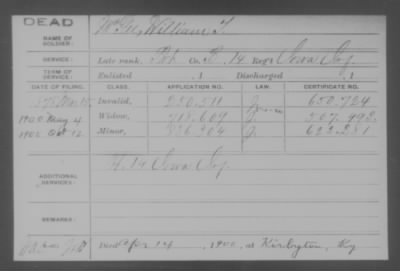 DEAD
NAME OF SOLDIER: McGee, William T.
SERVICE: Late rank, Pvt Co. B, 14 Reg't Iowa Inf.
TERM OF SERVICE: Enlisted , 1 Discharged , 1
DATE OF FILING. CLASS. APPLICATION NO. LAW. CERTIFICATE NO.
Invalid, 250,511 650,724
1900 May 4 Widow, 718,609 507,493
1900 Oct 12 Minor, 726,304
ADDITIONAL SERVICES: 14 Iowa Inf.
REMARKS:
Died Apr 14, 1900, at Kirbyton, Ky